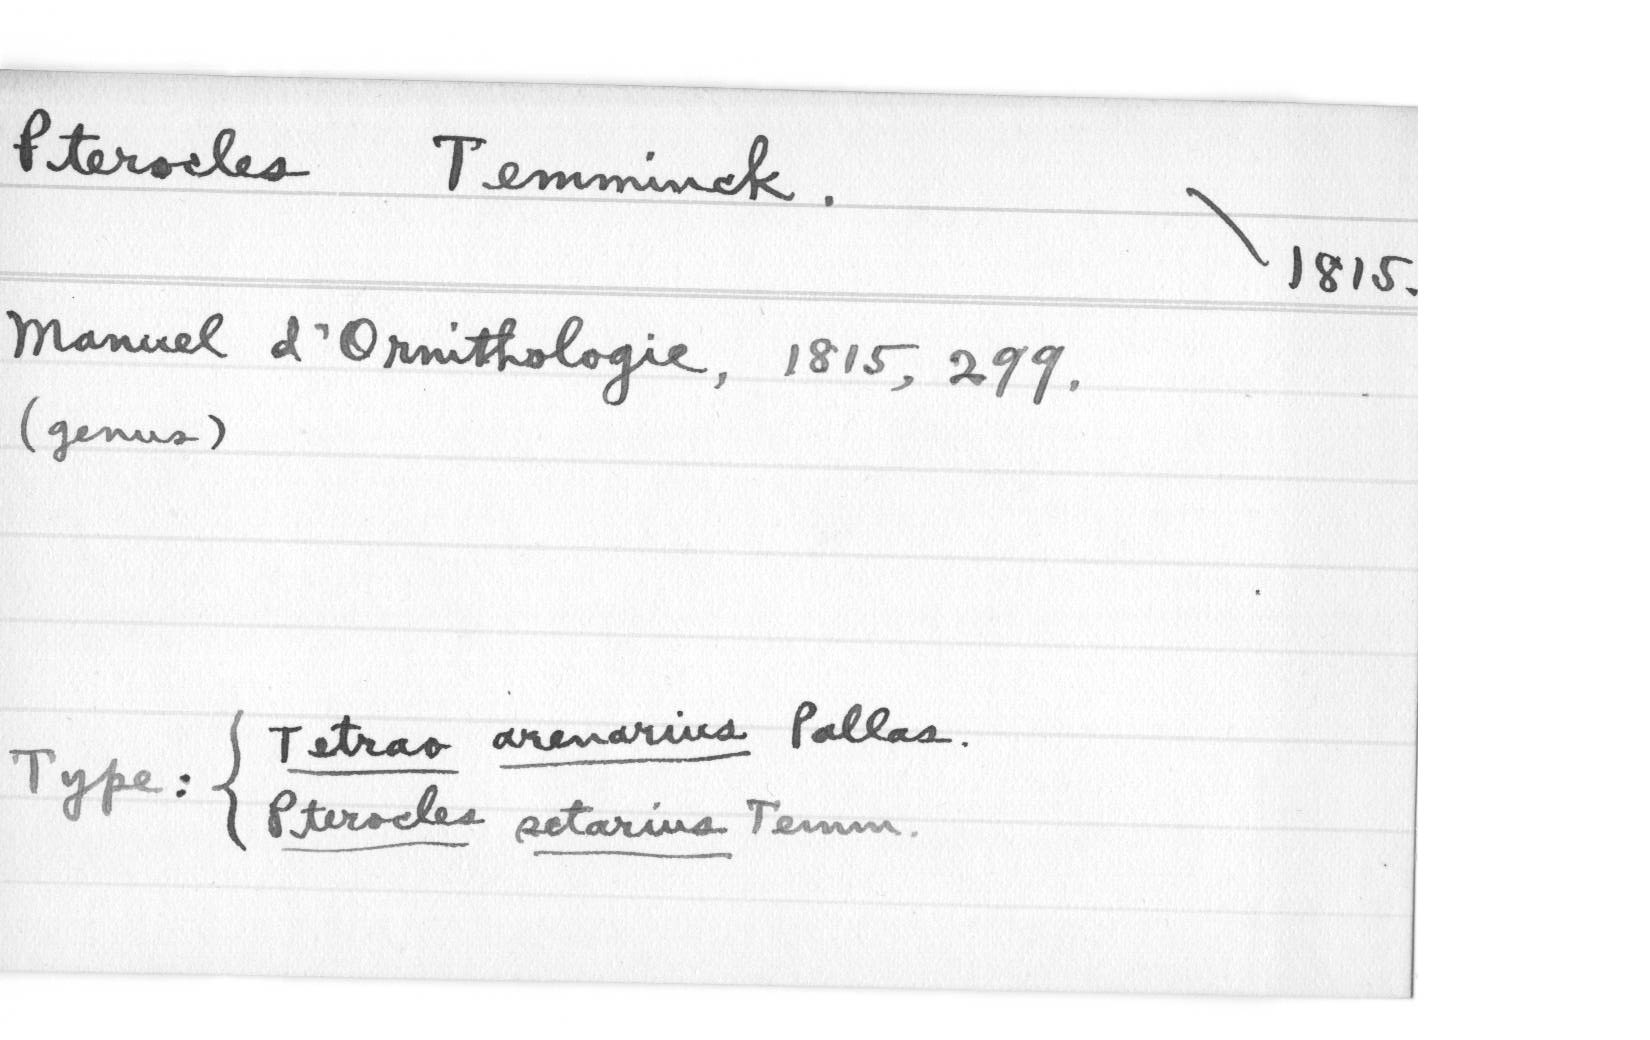 Pterocles Temminck.
1815.
Manuel d'Ornithologie, 1815, 299.
(genus)
Type: { Tetrao arenarius Pallas.
Pterocles setarius Temm.